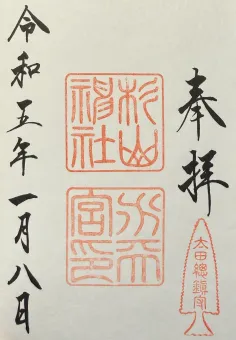 奉拝
太田總鎮守
杉山神社
水天宮印
令和五年一月八日